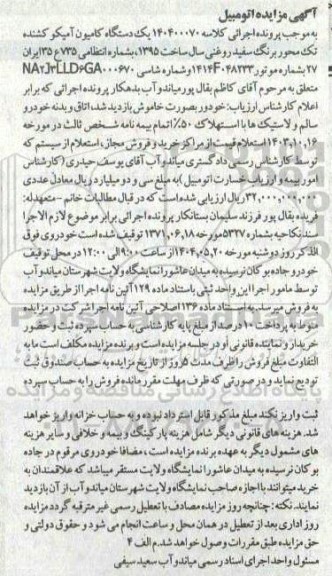 آگهی مزایده اتومبیل
به موجب پرونده اجرائی کلاسه ۱۴۰۴۰۰۰۷۰ یک دستگاه کامیون آمیکو کشنده
تک محور برنگ سفید روغنی سال ساخت ۱۳۹۵، بشماره انتظامی ۷۳۵ع۳۵ ایران
۲۷ بشماره موتور ۱۴۱۴F۰۴۸۲۳۳ وشماره شاسی NA۲J۳LLD۶GA۰۰۰۶۷۰
متعلق به مرحوم آقای کاظم بقال پورمیاندوآب بدهکار پرونده اجرائی که برابر
اعلام کارشناس ارزیاب: خودور بصورت خاموش بازدید شد، اتاق و بدنه خودرو
سالم و لاستیک ها با استهلاک ۵۰٪ اتمام بیمه نامه شخص ثالث در مورخه
۱۴۰۲,۱۰,۱۶ استعلام قیمت از مراکز خرید و فروش مجاز، استعلام از سیستم که
توسط کارشناس رسمی دادگستری میاندوآب آقای یوسف حیدری (کارشناس
امور بیمه و ارزیاب خسارت اتومبیل) به مبلغ سی و دو میلیارد ریال معادل عددی
۳۲,۰۰۰,۰۰۰,۰۰۰ ریال ارزیابی شده است که در قبال مطالبات خانم - متعهدله:
فریده بقال پور فرزند سلیمان بستانکار پرونده اجرائی برابر موضوع لازم الاجرا
سند نکاحیه بشماره ۵۳۲۷ مورخه ۱۳۷۱,۰۶,۱۸ توقیف شده است خودروی فوق
الذکر روز دوشنبه مورخه ۱۴۰۴,۰۵,۲۰ از ساعت ۹:۰۰ الی ۱۲:۰۰ در محل توقیف
خودرو جاده بوکان نرسیده به میدان عاشورا نمایشگاه ولایت شهرستان میاندوآب
توسط مامور اجرا این واحد ثبتی باستناد ماده ۱۲۹ آئین نامه اجرا از طریق مزایده
به فروش میرسد. به استناد ماده ۱۳۶ اصلاحی آئین نامه اجرا شرکت در مزایده
منوط به پرداخت ۱۰ درصد از مبلغ پایه کارشناسی به حساب سپرده ثبت و حضور
خریدار و نماینده قانونی او در جلسه مزایده است و برنده مزایده مکلف است ما به
التفاوت مبلغ فروش را ظرف مدت ۵ روز از تاریخ مزایده به حساب صندوق ثبت
تودیع نماید و در صورتی که ظرف مهلت مقرر مانده فروش را به حساب سپرده
ثبت واریز نکند مبلغ مذکور قابل استرداد نبوده و به حساب خزانه واریز خواهد
شد. هزینه های قانونی دیگر شامل هزینه پارکینگ و بیمه و خلافی و سایر هزینه
های مشمول دیگر به عهده برنده مزایده است، مضافا خودروی مرقوم در جاده
بوکان نرسیده به میدان عاشورا نمایشگاه ولایت مستقر میباشد که علاقمندان به
خرید میتوانند با اجازه صاحب نمایشگاه ولایت شهرستان میاندوآب از آن بازدید
نمایند. نکته: چنانچه روز مزایده مصادف با تعطیل رسمی غیر مترقبه گردد مزایده
روز اداری بعد از تعطیل در همان محل و ساعت انجام می شود و حقوق دولتی و
حق مزایده طبق مقررات وصول خواهد شد. م الف ۴
مسئول واحد اجرای اسناد رسمی میاندوآب سعید سیفی